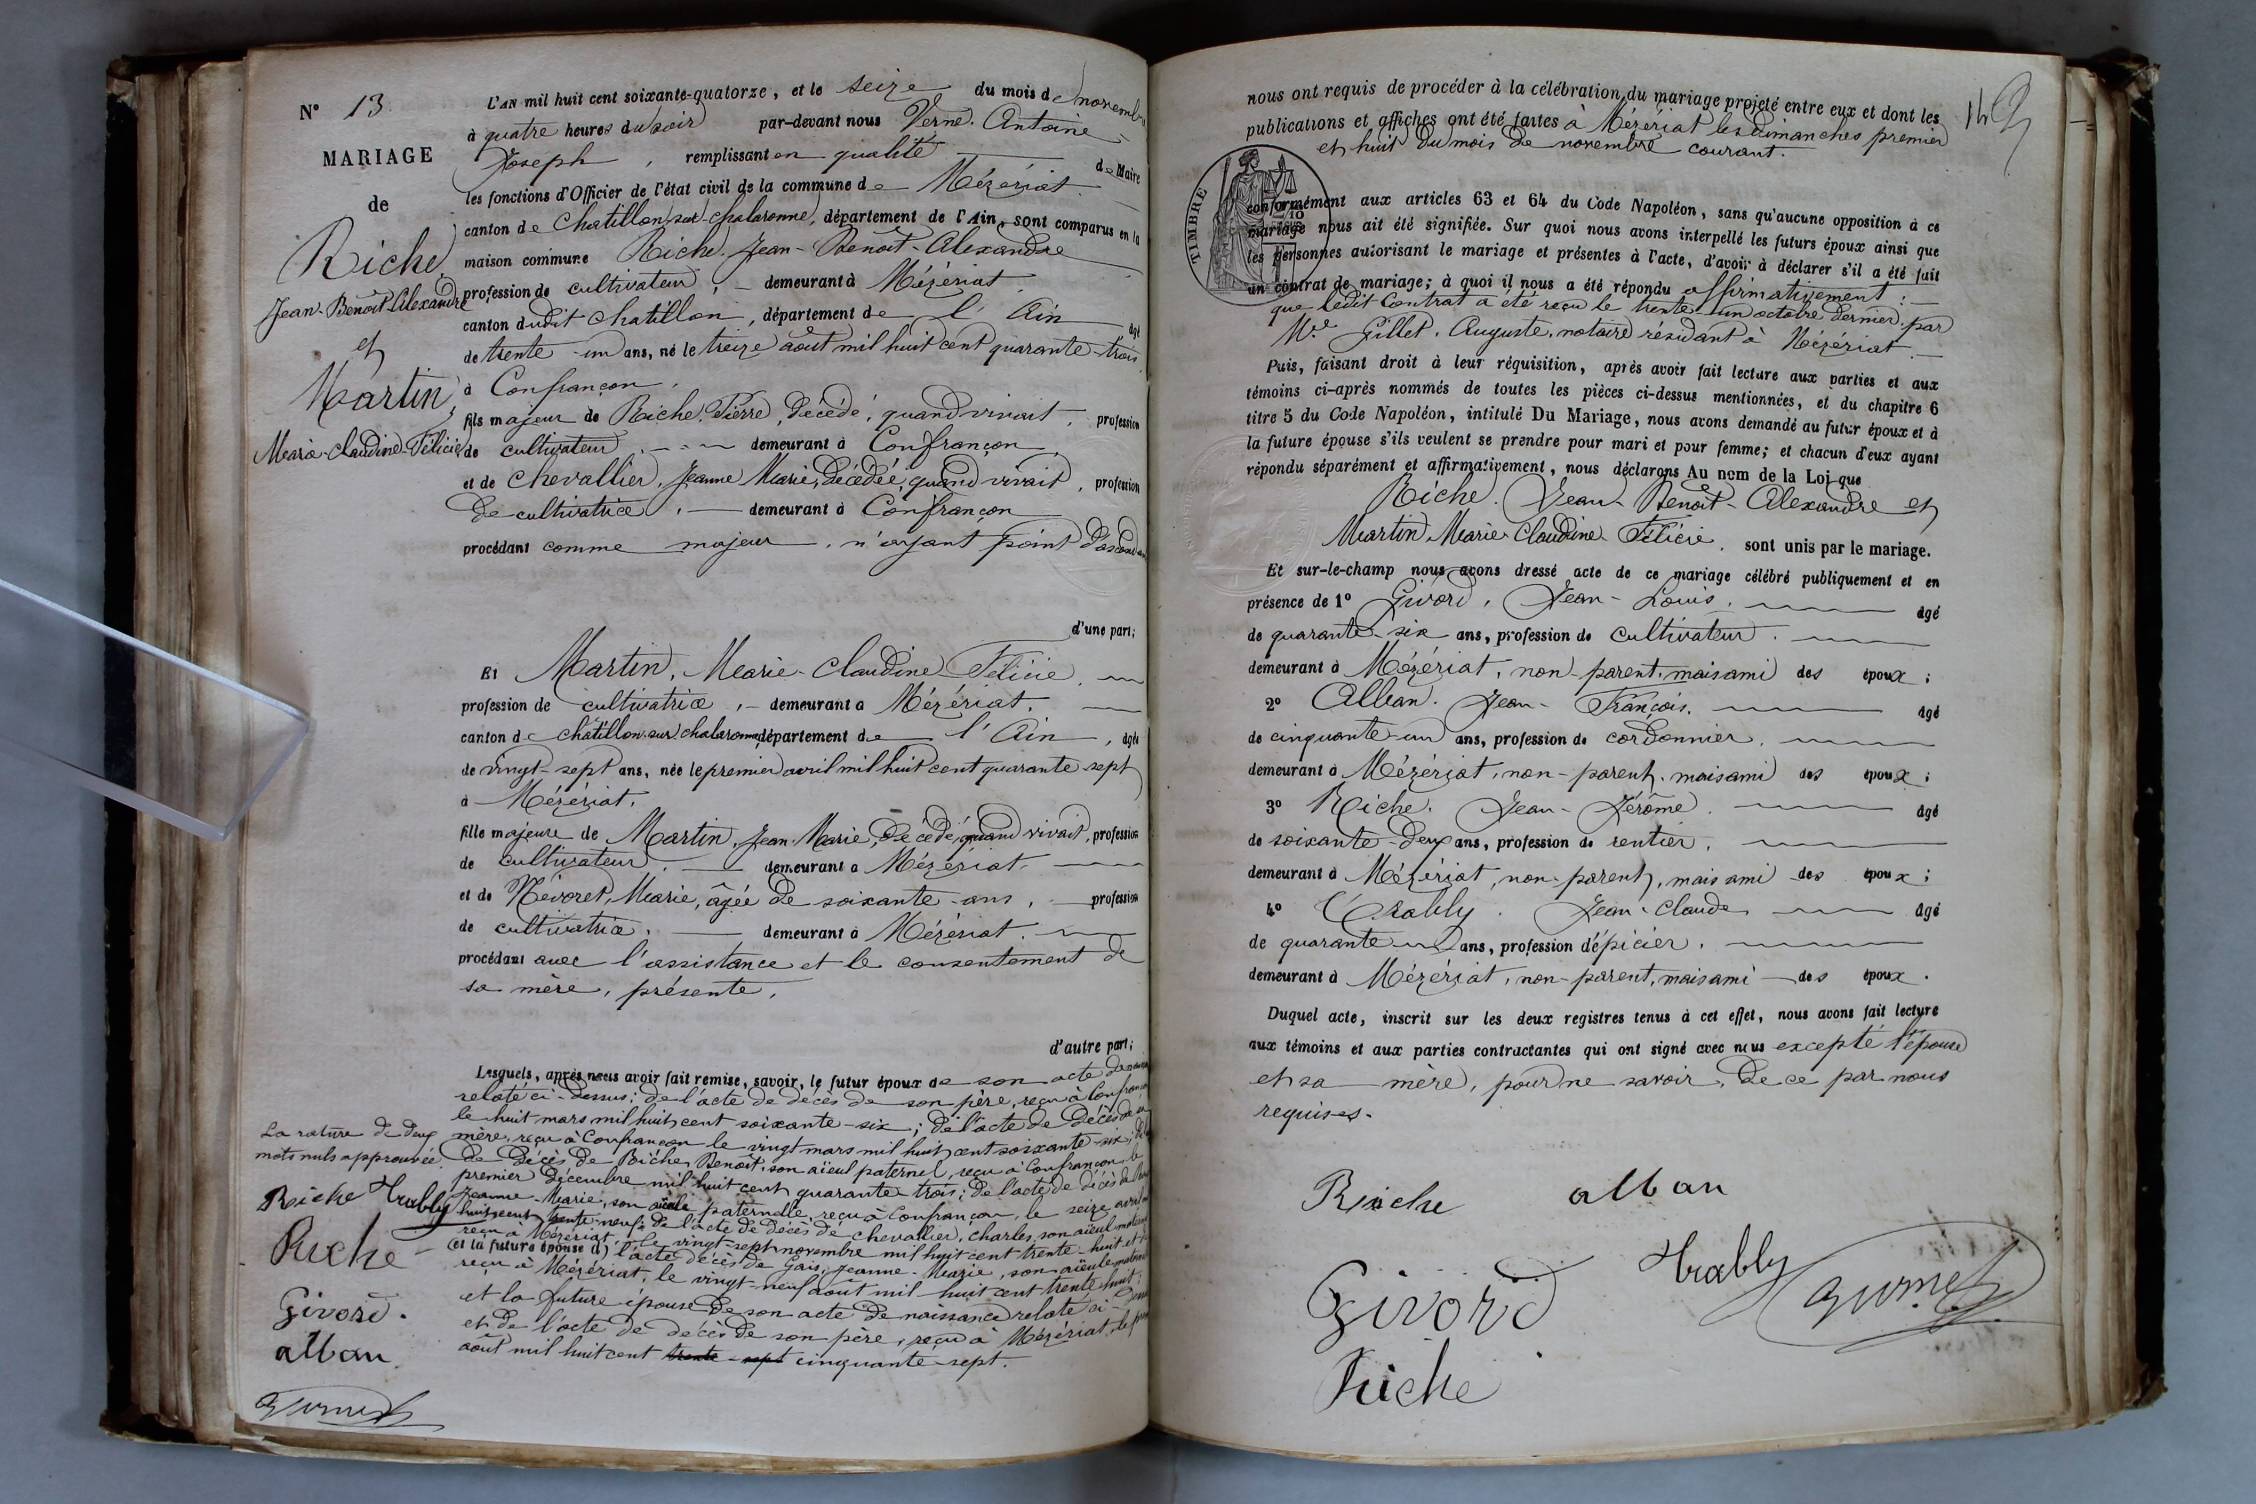 N° 13
MARIAGE
de
Riche
Jean-Benoît-Alexandre
et
Martin,
Marie-Claudine-Félicie
L'AN mil huit cent soixante-quatorze, et le seize du mois de novembre
à quatre heures du soir par-devant nous Verne Antoine
Joseph, remplissant en qualité de Maire
les fonctions d'Officier de l'état civil de la commune de Mézériat
canton de Chatillon-sur-Chalaronne, département de l'Ain, sont comparus en la
maison commune Riche Jean-Benoît-Alexandre
profession de cultivateur, demeurant à Mézériat
canton dudit Chatillon, département de l'Ain âgé
de trente-un ans, né le treize août mil huit cent quarante-trois
à Confrançon,
fils majeur de Riche, Pierre, décédé, quand vivait, profession
de cultivateur, demeurant à Confrançon,
et de Chevallier, Jeanne Marie, décédée, quand vivait, profession
de cultivatrice, demeurant à Confrançon
procédant comme majeur, n'ayant point
d'une part;
Et Martin, Marie-Claudine Félicie,
profession de cultivatrice, demeurant à Mézériat,
canton de Châtillon-sur-Chalaronne, département de l'Ain, âgée
de vingt-sept ans, née le premier avril mil huit cent quarante-sept
à Mézériat,
fille majeure de Martin, Jean-Marie, décédé, quand vivait, profession
de cultivateur, demeurant à Mézériat,
et de Névoret, Marie, âgée de soixante ans, profession
de cultivatrice, demeurant à Mézériat.
procédant avec l'assistance et le consentement de
sa mère, présente,
d'autre part;
Lesquels, après nous avoir fait remise, savoir, le futur époux de son acte de
relaté ci-dessus; de l'acte de décès de son père, reçu à
le huit mars mil huit cent soixante-six; de l'acte de décès de sa
mère, reçu à Confrançon le vingt mars mil huit cent soixante-six; de
de décès de Riche, Benoît, son aïeul paternel, reçu à Confrançon, le
premier décembre mil huit cent quarante trois; de l'acte de décès de
Jeanne-Marie, son aïeule paternelle, reçu à Confrançon, le seize avril
huit cent trente-neuf; de l'acte de décès de Chevallier, Charles, son aïeul
reçu à Mézériat, le vingt-sept novembre mil huit cent trente-huit et
(et la future épouse d) l'acte décès de Gais, Jeanne-Marie, son aïeule
reçu à Mézériat, le vingt-neuf août mil huit cent trente-huit;
et la future épouse de son acte de naissance relaté ci-
et de l'acte de décès de son père, reçu à Mézériat, le
août mil huit cent trente-sept cinquante-sept.
La rature de deux
mots nuls approuvée
Riche Trably
Riche
Givord.
alban
nous ont requis de procéder à la célébration du mariage projeté entre eux et dont les
publications et affiches ont été faites à Mézériat les dimanches premier
et huit du mois de novembre courant.
TIMBRE
conformément aux articles 63 et 64 du Code Napoléon, sans qu'aucune opposition à ce
mariage nous ait été signifiée. Sur quoi nous avons interpellé les futurs époux ainsi que
les personnes autorisant le mariage et présentes à l'acte, d'avoir à déclarer s'il a été fait
un contrat de mariage; à quoi il nous a été répondu affirmativement;
que ledit contrat a été reçu le trente-un octobre dernier, par
Me Gillet, Auguste, notaire résidant à Mézériat.
Puis, faisant droit à leur réquisition, après avoir fait lecture aux parties et aux
témoins ci-après nommés de toutes les pièces ci-dessus mentionnées, et du chapitre 6
titre 5 du Code Napoléon, intitulé Du Mariage, nous avons demandé au futur époux et à
la future épouse s'ils veulent se prendre pour mari et pour femme; et chacun d'eux ayant
répondu séparément et affirmativement, nous déclarons Au nom de la Loi que
Riche, Jean-Benoît-Alexandre et
Martin, Marie-Claudine-Félicie, sont unis par le mariage.
Et sur-le-champ nous avons dressé acte de ce mariage célébré publiquement et en
présence de 1° Givord, Jean-Louis, âgé
de quarante-six ans, profession de cultivateur,
demeurant à Mézériat, non-parent, mais ami des époux;
2° Alban, Jean-François, âgé
de cinquante-un ans, profession de cordonnier,
demeurant à Mézériat, non-parent, mais ami des époux;
3° Riche, Jean-Jérôme, âgé
de soixante-deux ans, profession de rentier,
demeurant à Mézériat, non-parent, mais ami des époux;
4° Trably, Jean-Claude âgé
de quarante ans, profession d'épicier,
demeurant à Mézériat, non-parent, mais ami des époux.
Duquel acte, inscrit sur les deux registres tenus à cet effet, nous avons fait lecture
aux témoins et aux parties contractantes qui ont signé avec nous excepté l'épouse
et sa mère, pour ne savoir, de ce par nous
requises.
Riche alban
Trably
Givord
Riche